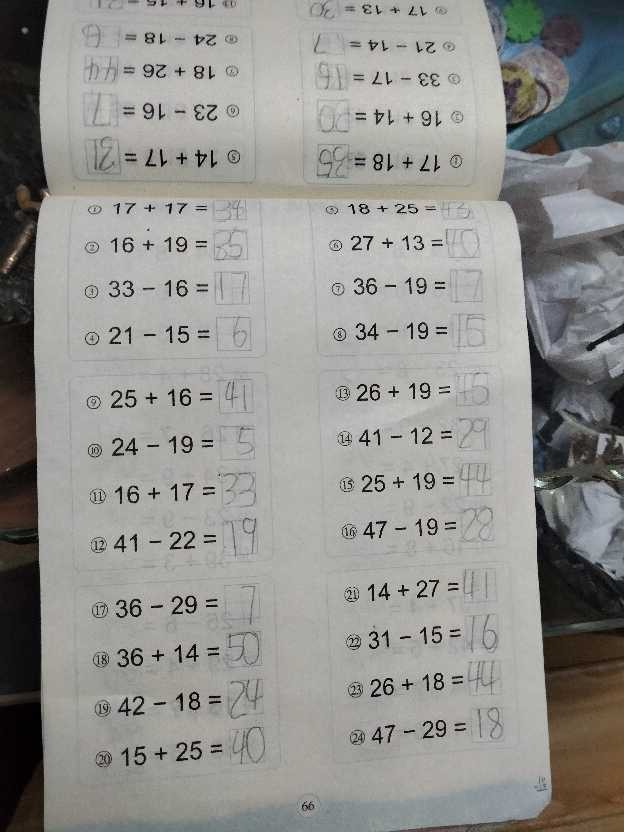 ⑩ 16 + 15 =
⑨ 17 + 13 = 30
⑧ 24 - 18 = 6
④ 21 - 14 = 7
⑦ 18 + 26 = 44
③ 33 - 17 = 16
⑥ 23 - 16 = 7
② 16 + 14 = 30
⑤ 14 + 17 = 31
① 17 + 18 = 35
① 17 + 17 = 34
② 16 + 19 = 35
③ 33 - 16 = 17
④ 21 - 15 = 6
⑤ 18 + 25 = 43
⑥ 27 + 13 = 40
⑦ 36 - 19 = 17
⑧ 34 - 19 = 15
⑨ 25 + 16 = 41
⑩ 24 - 19 = 5
⑪ 16 + 17 = 33
⑫ 41 - 22 = 19
⑬ 26 + 19 = 45
⑭ 41 - 12 = 29
⑮ 25 + 19 = 44
⑯ 47 - 19 = 28
⑰ 36 - 29 = 7
⑱ 36 + 14 = 50
⑲ 42 - 18 = 24
⑳ 15 + 25 = 40
㉑ 14 + 27 = 41
㉒ 31 - 15 = 16
㉓ 26 + 18 = 44
㉔ 47 - 29 = 18
66